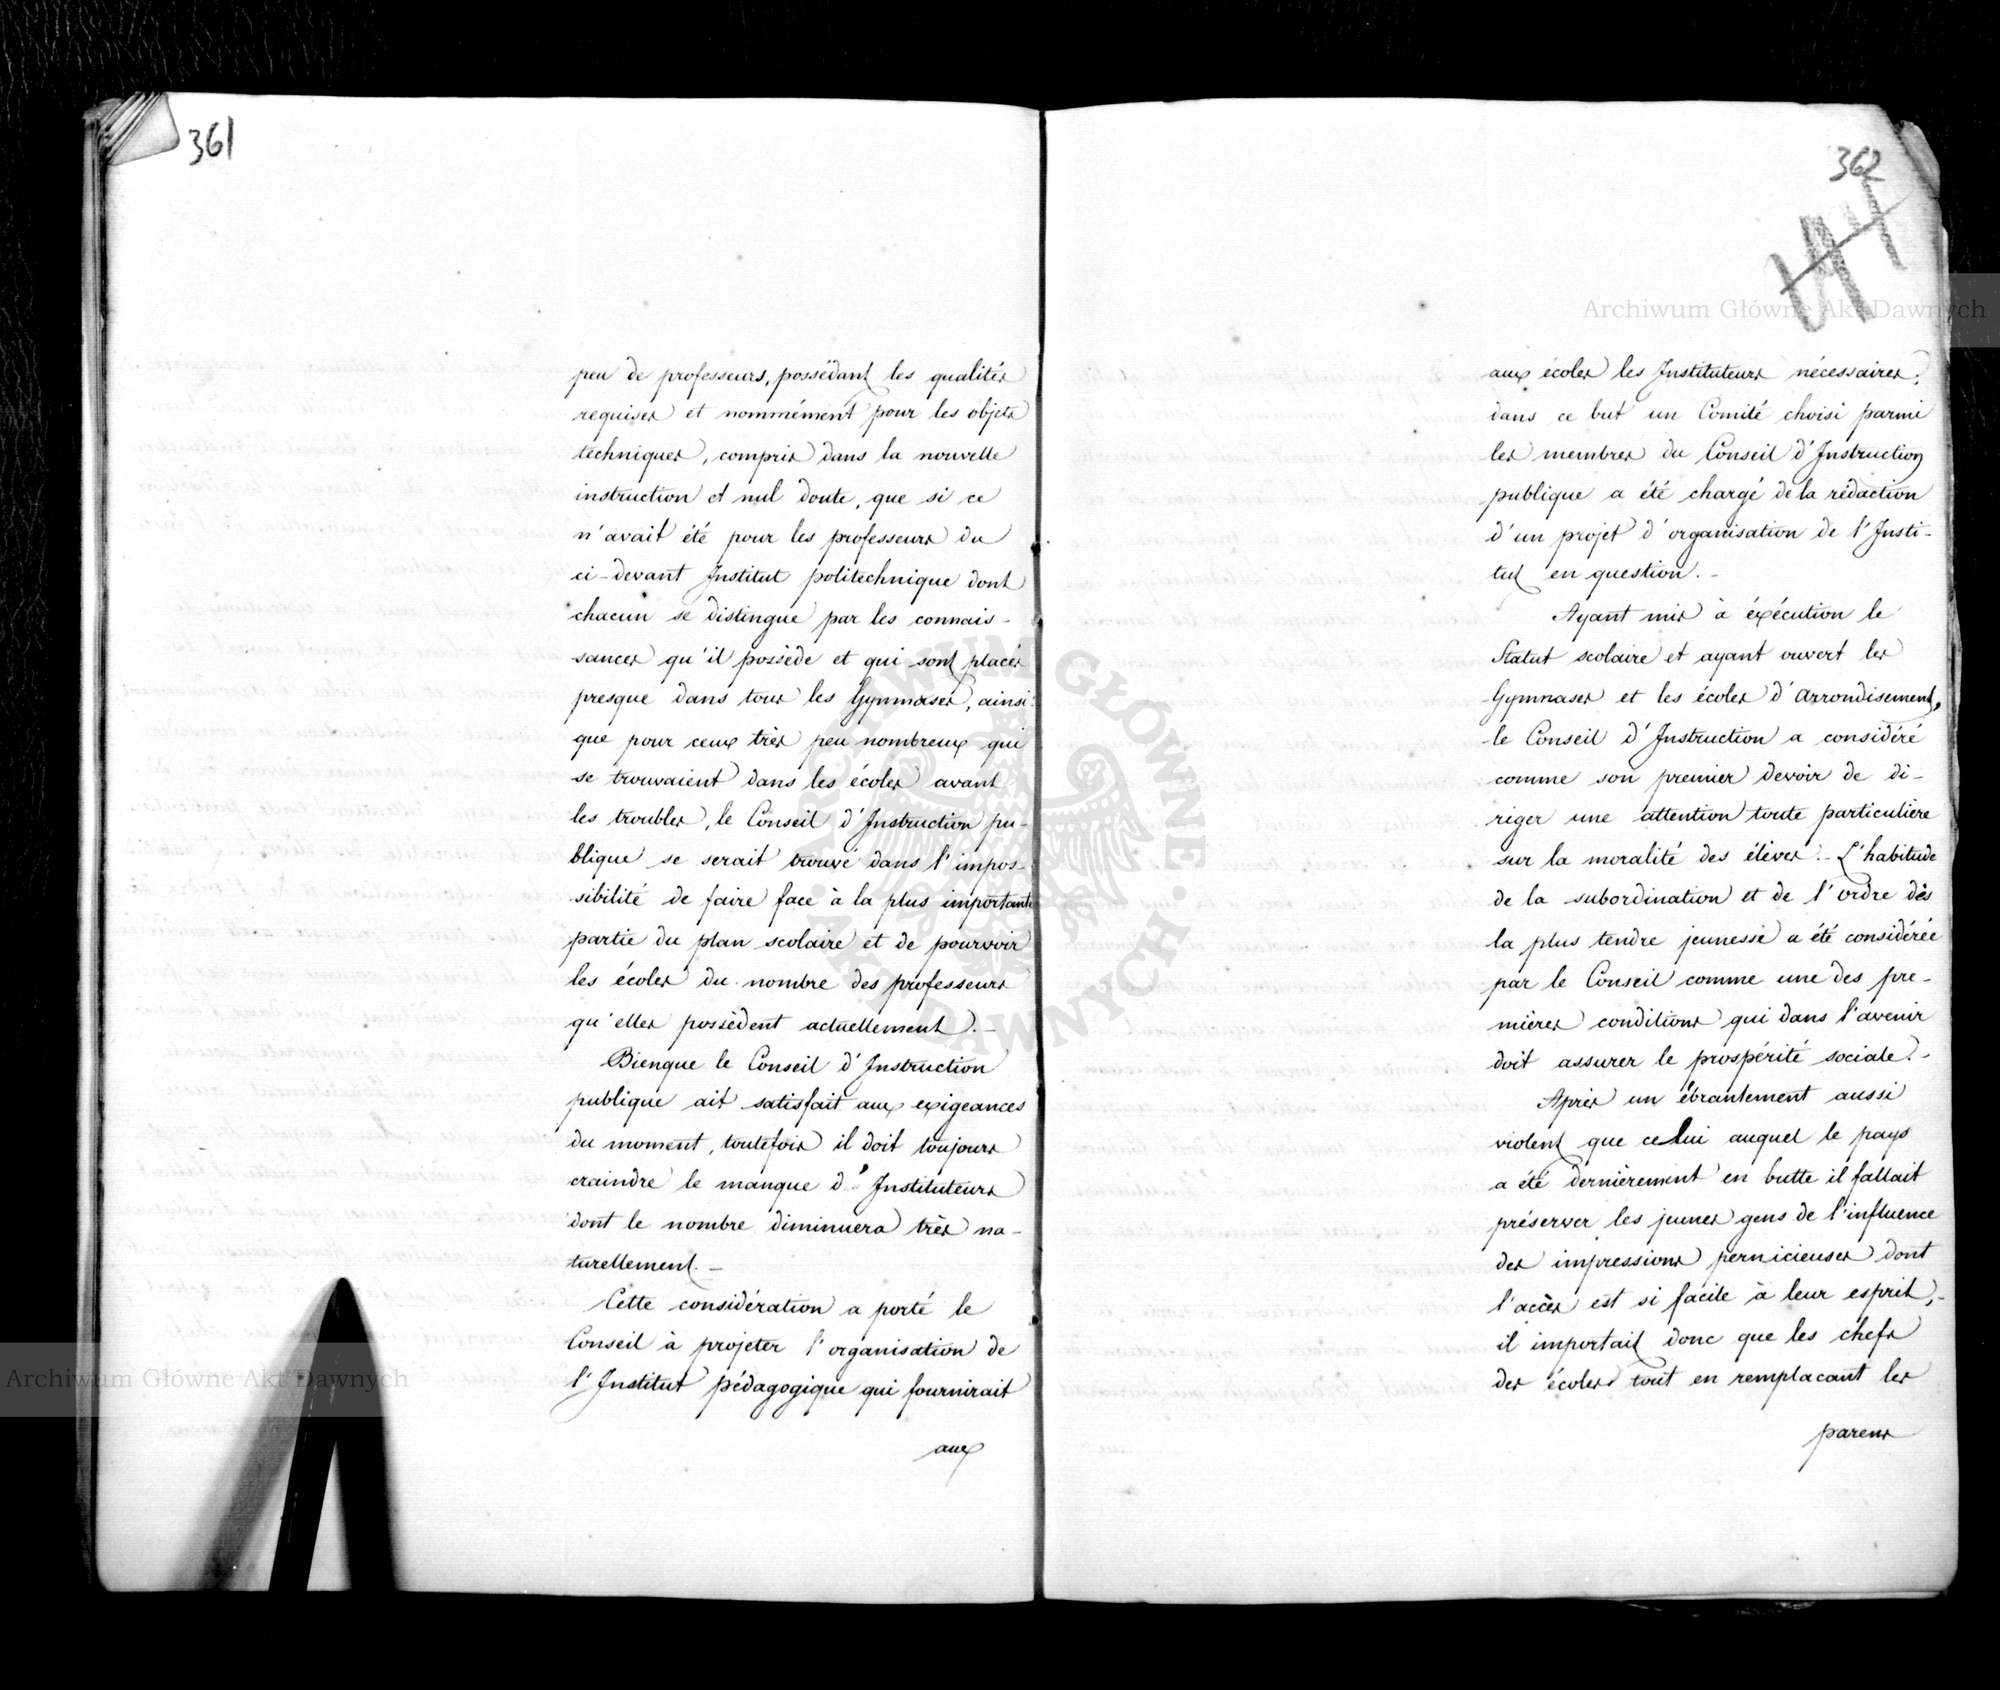 361
peu de professeurs, possédant les qualités
requises et nommément pour les objets
techniques, compris dans la nouvelle
instruction et nul doute, que si ce
n'avait été pour les professeurs du
ci-devant Institut politechnique dont
chacun se distingue par les connais-
sances qu'il possède et qui sont placés
presque dans tous les Gymnases, ainsi
que pour ceux très peu nombreux qui
se trouvaient dans les écoles avant
les troubles, le Conseil d'Instruction pu-
blique se serait trouvé dans l'impos-
sibilité de faire face à la plus importante
partie du plan scolaire et de pourvoir
les écoles du nombre des professeurs
qu'elles possèdent actuellement.-
Bienque le Conseil d'Instruction
publique ait satisfait aux exigeances
du moment, toutefois il doit toujours
craindre le manque d'Instituteurs
dont le nombre diminuera très na-
turellement.-
Cette considération a porté le
Conseil à projeter l'organisation de
l'Institut pédagogique qui fournirait
aux
362
aux écoles les Instituteurs nécessaires;
dans ce but un Comité choisi parmi
les membres du Conseil d'Instruction
publique a été chargé de la rédaction
d'un projet d'organisation de l'Insti-
tut en question.-
Ayant mis à éxécution le
Statut scolaire et ayant ouvert les
Gymnases et les écoles d'arrondisement,
le Conseil d'Instruction a considéré
comme son premier devoir de di-
riger une attention toute particulière
sur la moralité des élèves.- L'habitude
de la subordination et de l'ordre dès
la plus tendre jeunesse a été considérée
par le Conseil comme une des pre-
mières conditions qui dans l'avenir
doit assurer le prospérité sociale.-
Après un ébrantement aussi
violent que celui auquel le pays
a été dernièrement en butte il fallait
préserver les jeunes gens de l'influence
des impressions pernicieuses dont
l'accès est si facile à leur esprit,-
il importait donc que les chefs
des écoles tout en remplacant les
parens
Archiwum Główne Akt Dawnych
Archiwum Główne Akt Dawnych
ARCHIWUM GŁÓWNE AKT DAWNYCH